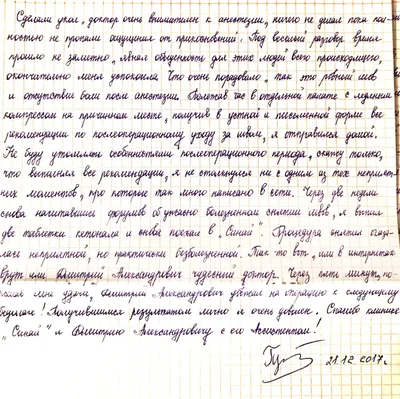 Сделали укол, доктор очень внимателен к анестезии, ничего не делал пока пол-
ностью не пропали ощущения от прикосновений. Под веселый разговор время
прошло не заметно, явная обыденность для этих людей всего происходящего,
окончательно меня успокоила. Что очень порадовало, так это ровный шов
и отсутствие боли после анестезии. Полежав час в отдельной палате с ледяным
компрессом на причинном месте, получив в устной и письменной форме все
рекомендации по послеоперационному уходу за швом, я отправился домой.
Не буду утомлять особенностями послеоперационного периода, скажу только,
что выполняя все рекомендации, я не столкнулся ни с одним из тех неприят-
ных моментов, про которые так много написано в сети. Через две недели
снова начитавшись форумов об ужасно болезненном снятии швов, я выпил
две таблетки кетонала и снова поехал в "Синай". Процедура снятия оказа-
лась неприятной, но практически безболезненной. Так-то вот, или в интернетах
врут или Дмитрий Александрович чудесный доктор. Через пять минут, по-
желав мне удачи, Дмитрий Александрович убежал на операцию к следующему
бедолаге! Получившимся результатом лично я очень доволен. Спасибо клинике
"Синай" и Дмитрию Александровичу с его Ассистентом!
21.12.2017г.